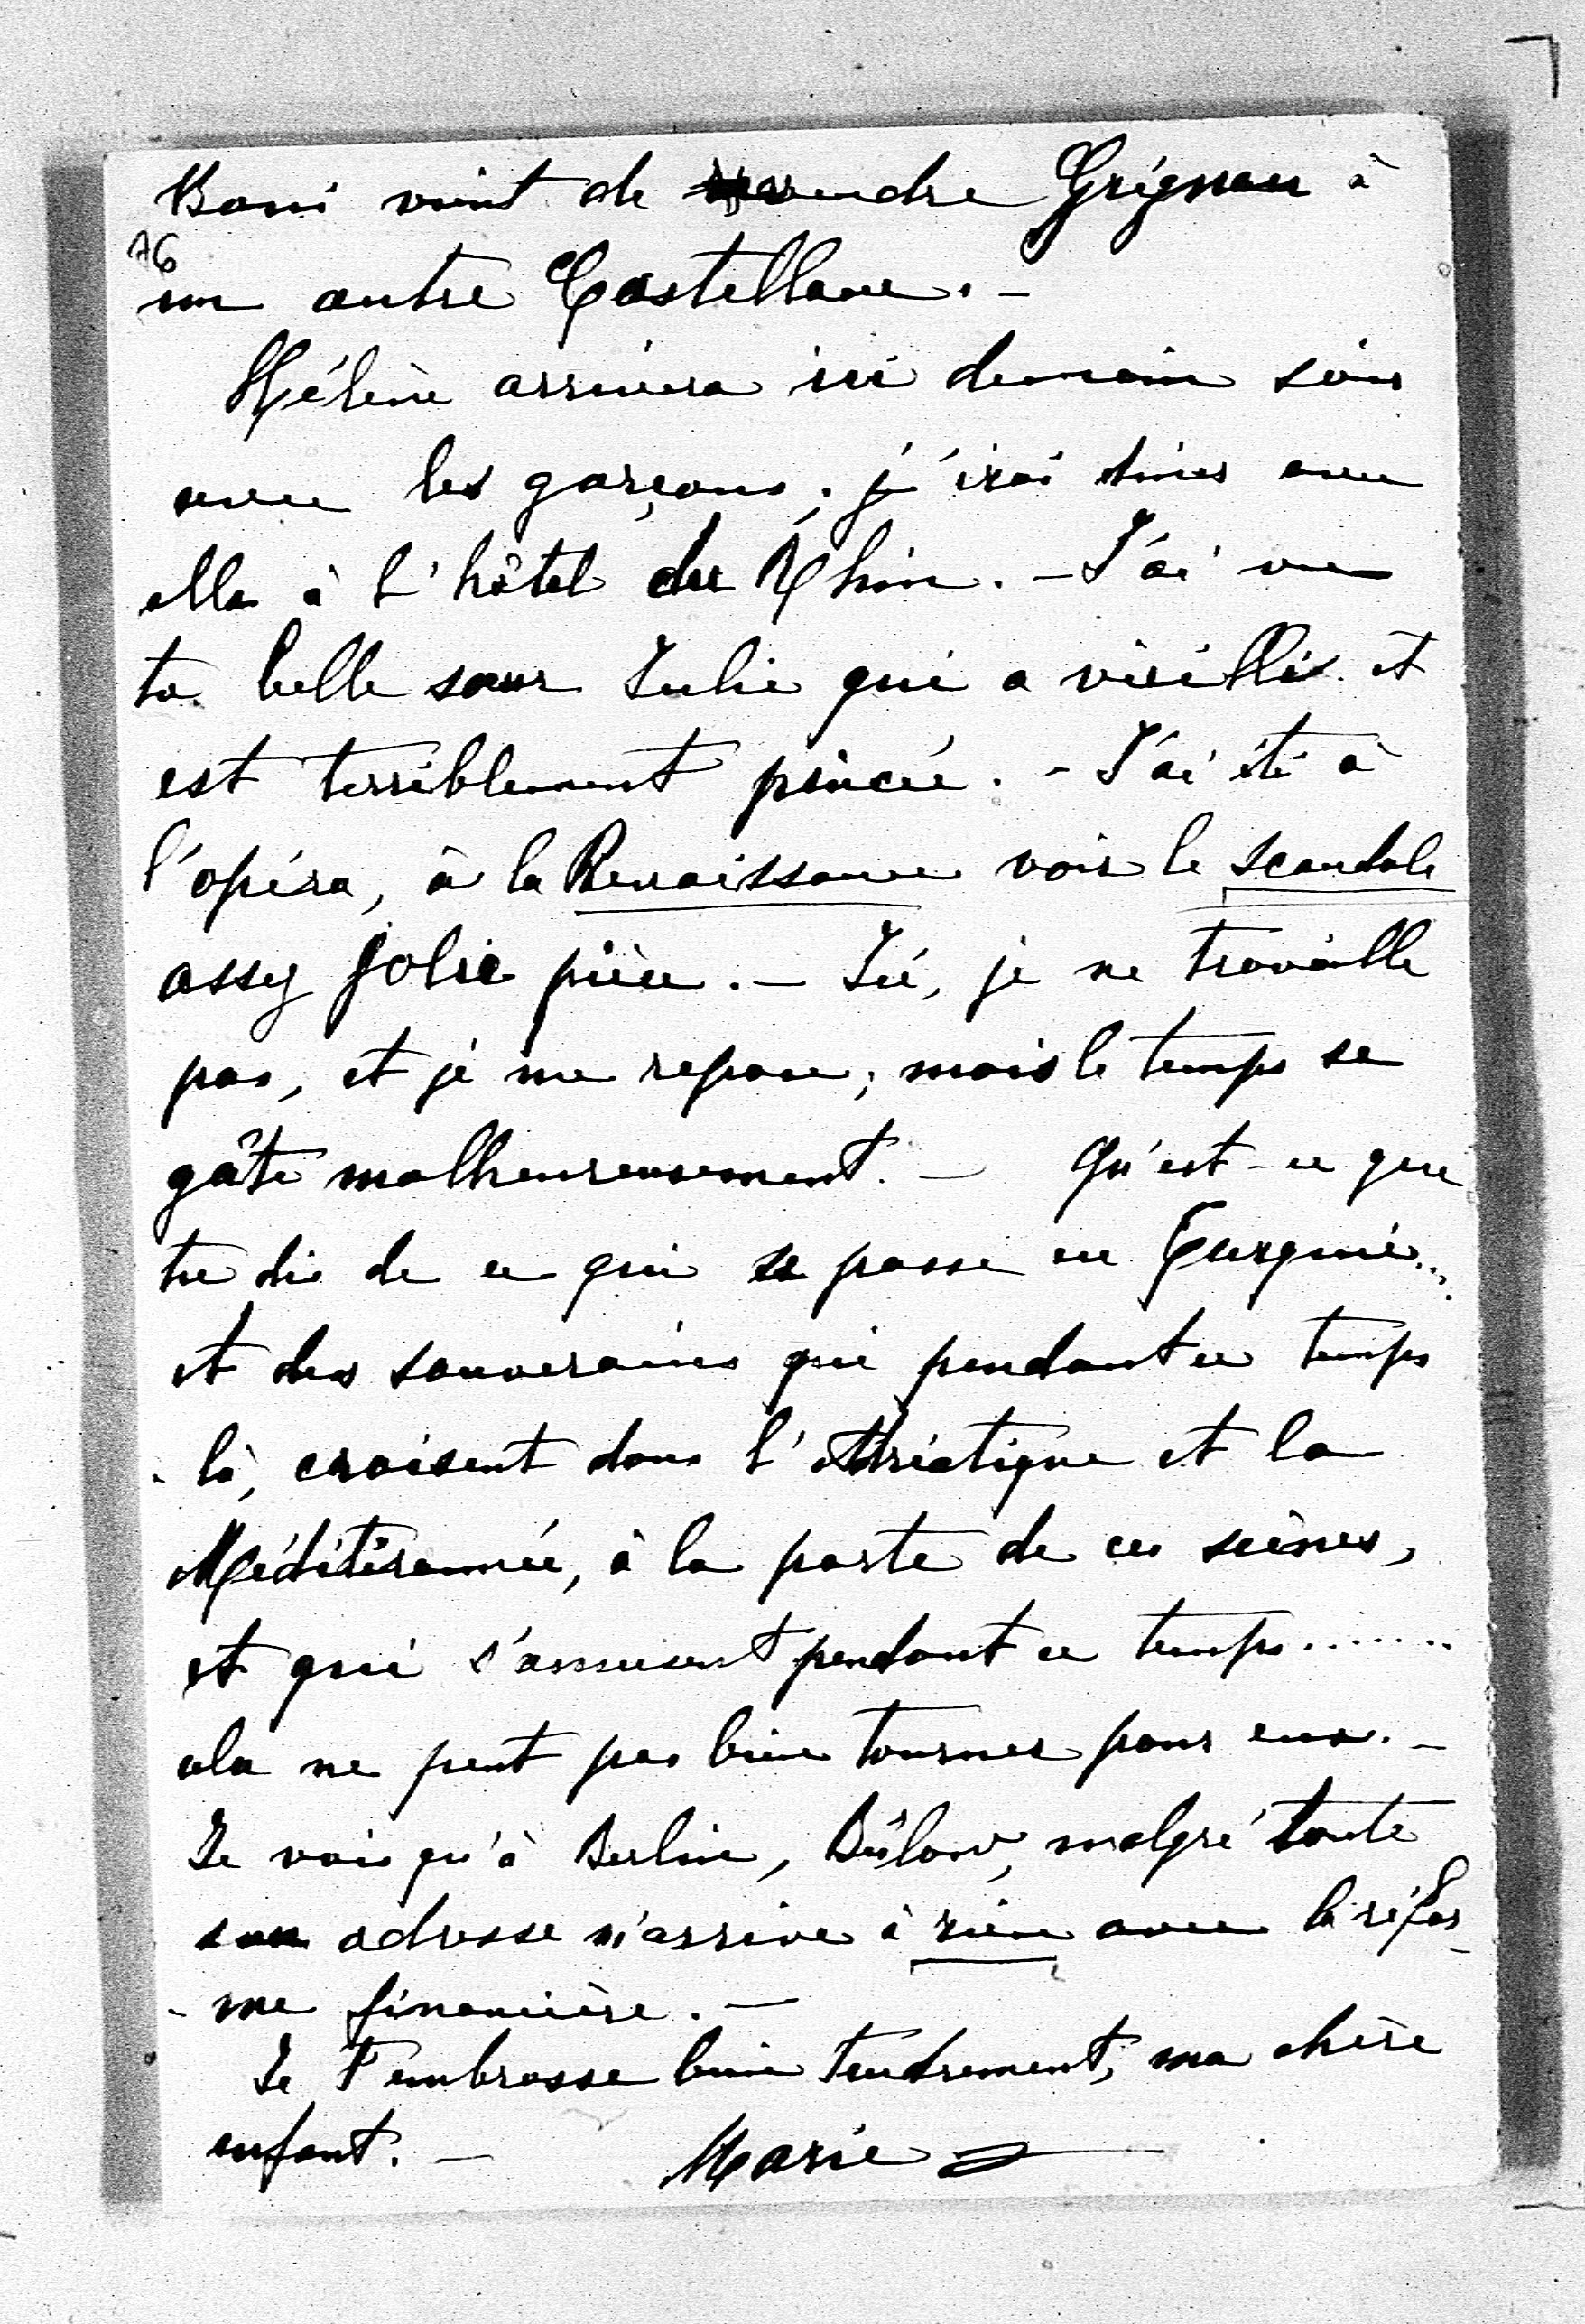 Boni vient de vendre Grignan à
76
un autre Castellane. -
Hélène arrivera ici demain soir
avec les garçons ; j'irai dîner avec
elle à l'hôtel du Rhin. - J'ai vu
ta belle sœur Julie qui a vieilli et
est terriblement pincée. - J'ai été à
l'opéra, à la Renaissance voir le scandale
assez jolie pièce. - Ici, je ne travaille
pas, et je me repose ; mais le temps se
gâte malheureusement. - Qu'est-ce que
tu dis de ce qui se passe en Turquie...
et des souverains qui pendant ce temps
- là, croisent dans l'Adriatique et la
Méditérannée, à la porte de ces scènes,
et qui s'amusent pendant ce temps.......
cela ne peut pas bien tourner pour eux. -
Je vois qu'à Berlin, Bülow, malgré toute
son adresse n'arrive à rien avec la réfor-
- me financière. -
Je t'embrasse bien tendrement, ma chère
enfant. - Marie